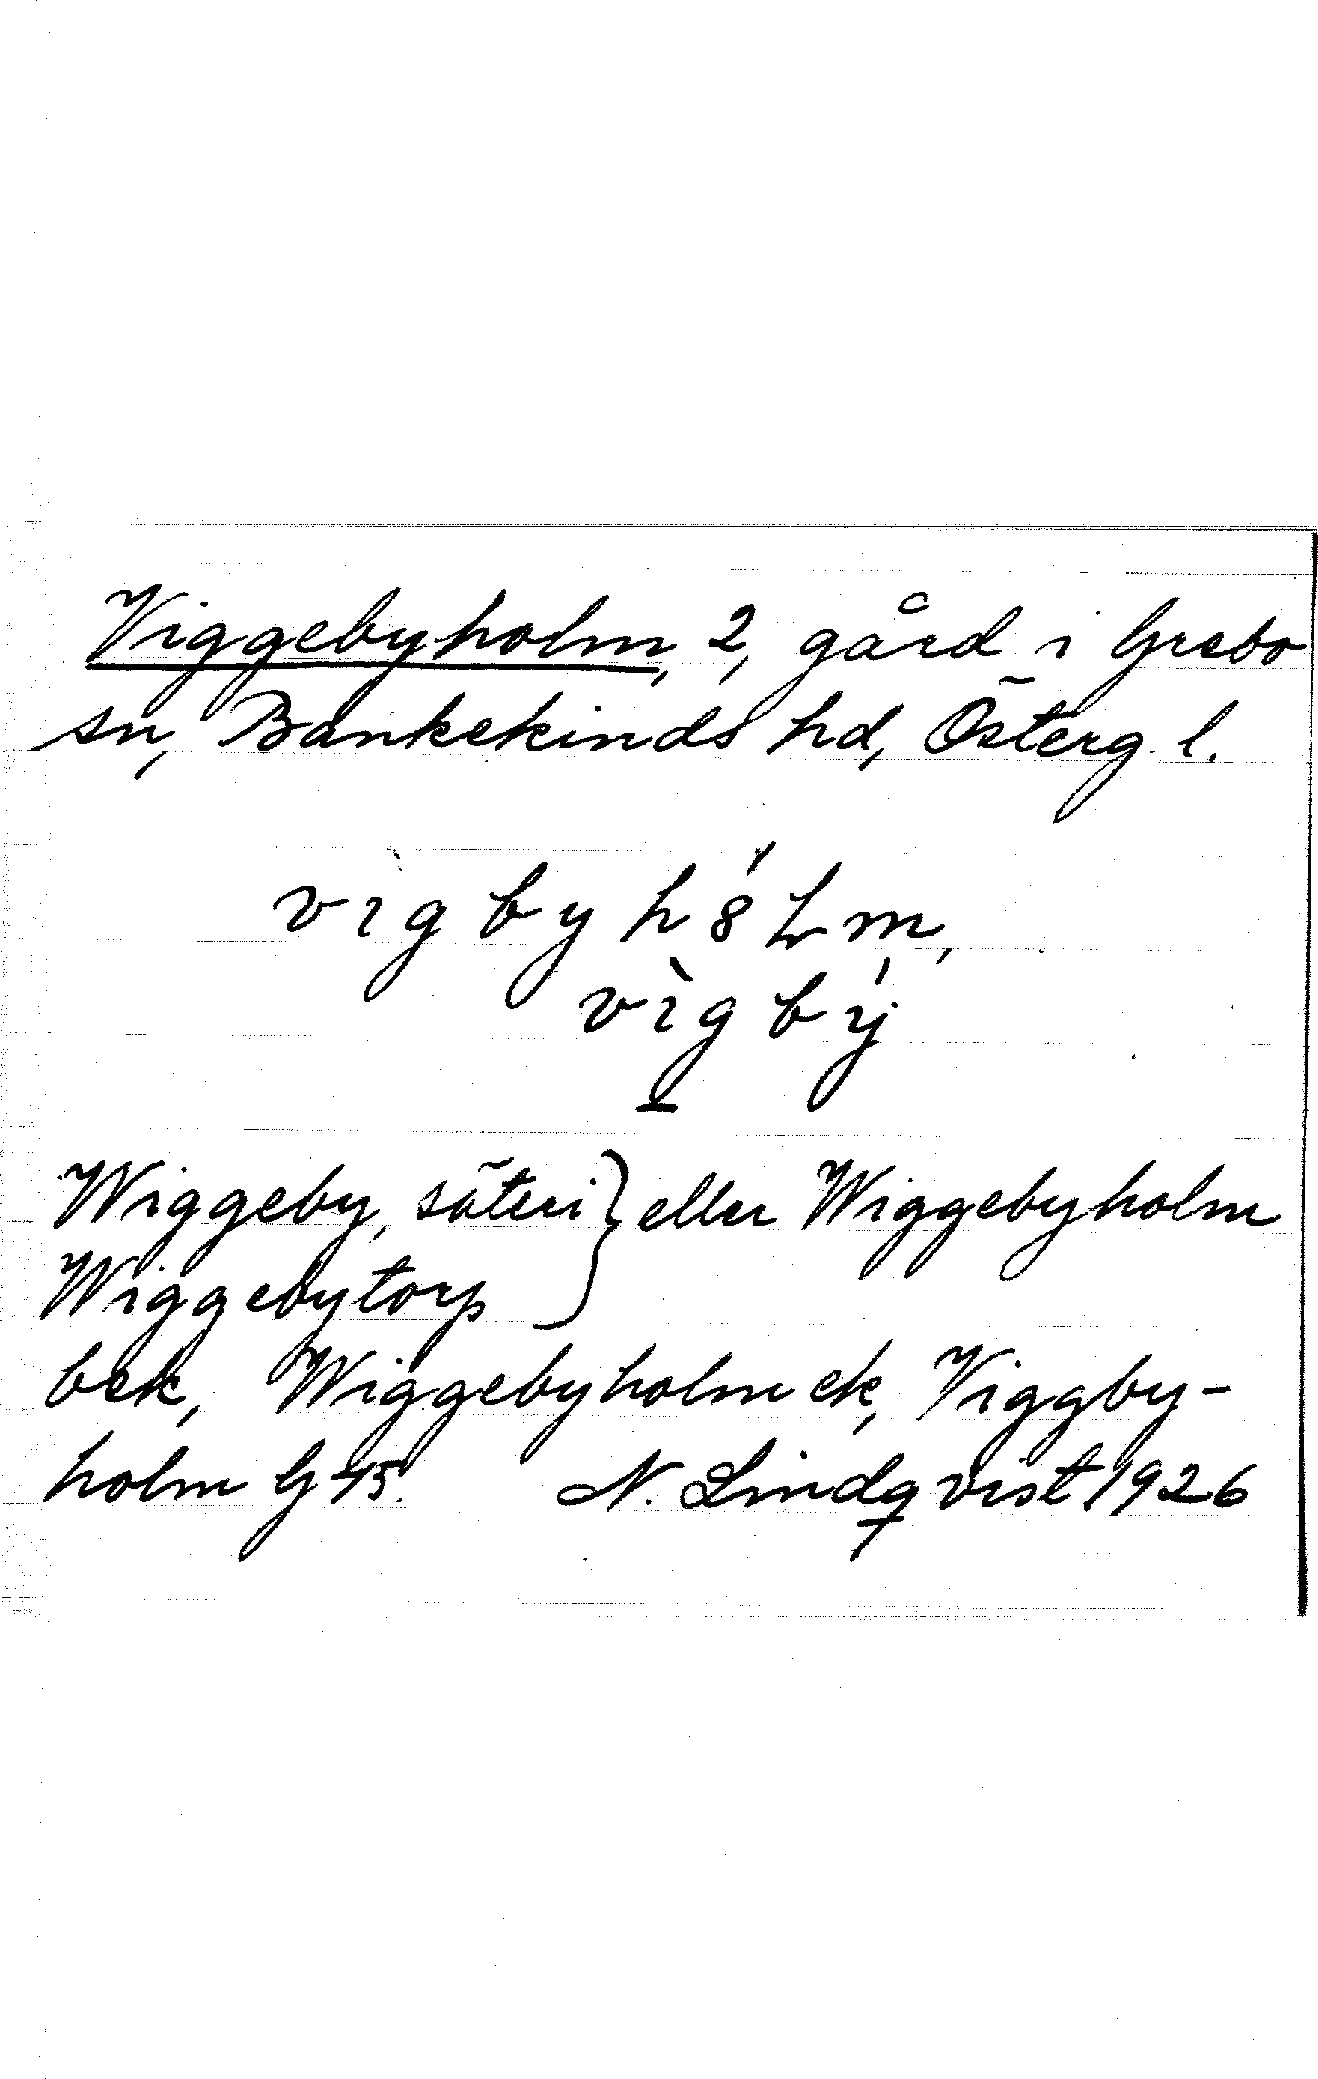 Viggebyholm, 2, gård i Grebo
sn, Bankekinds hd, Österg. l.
vìgbyhólm,
vìgbý
Wiggeby, säteri } eller Wiggebyholm
Wiggebytorp
bek, Wiggebyholm ek, Viggby-
holm G 45. N. Lindqvist 1926